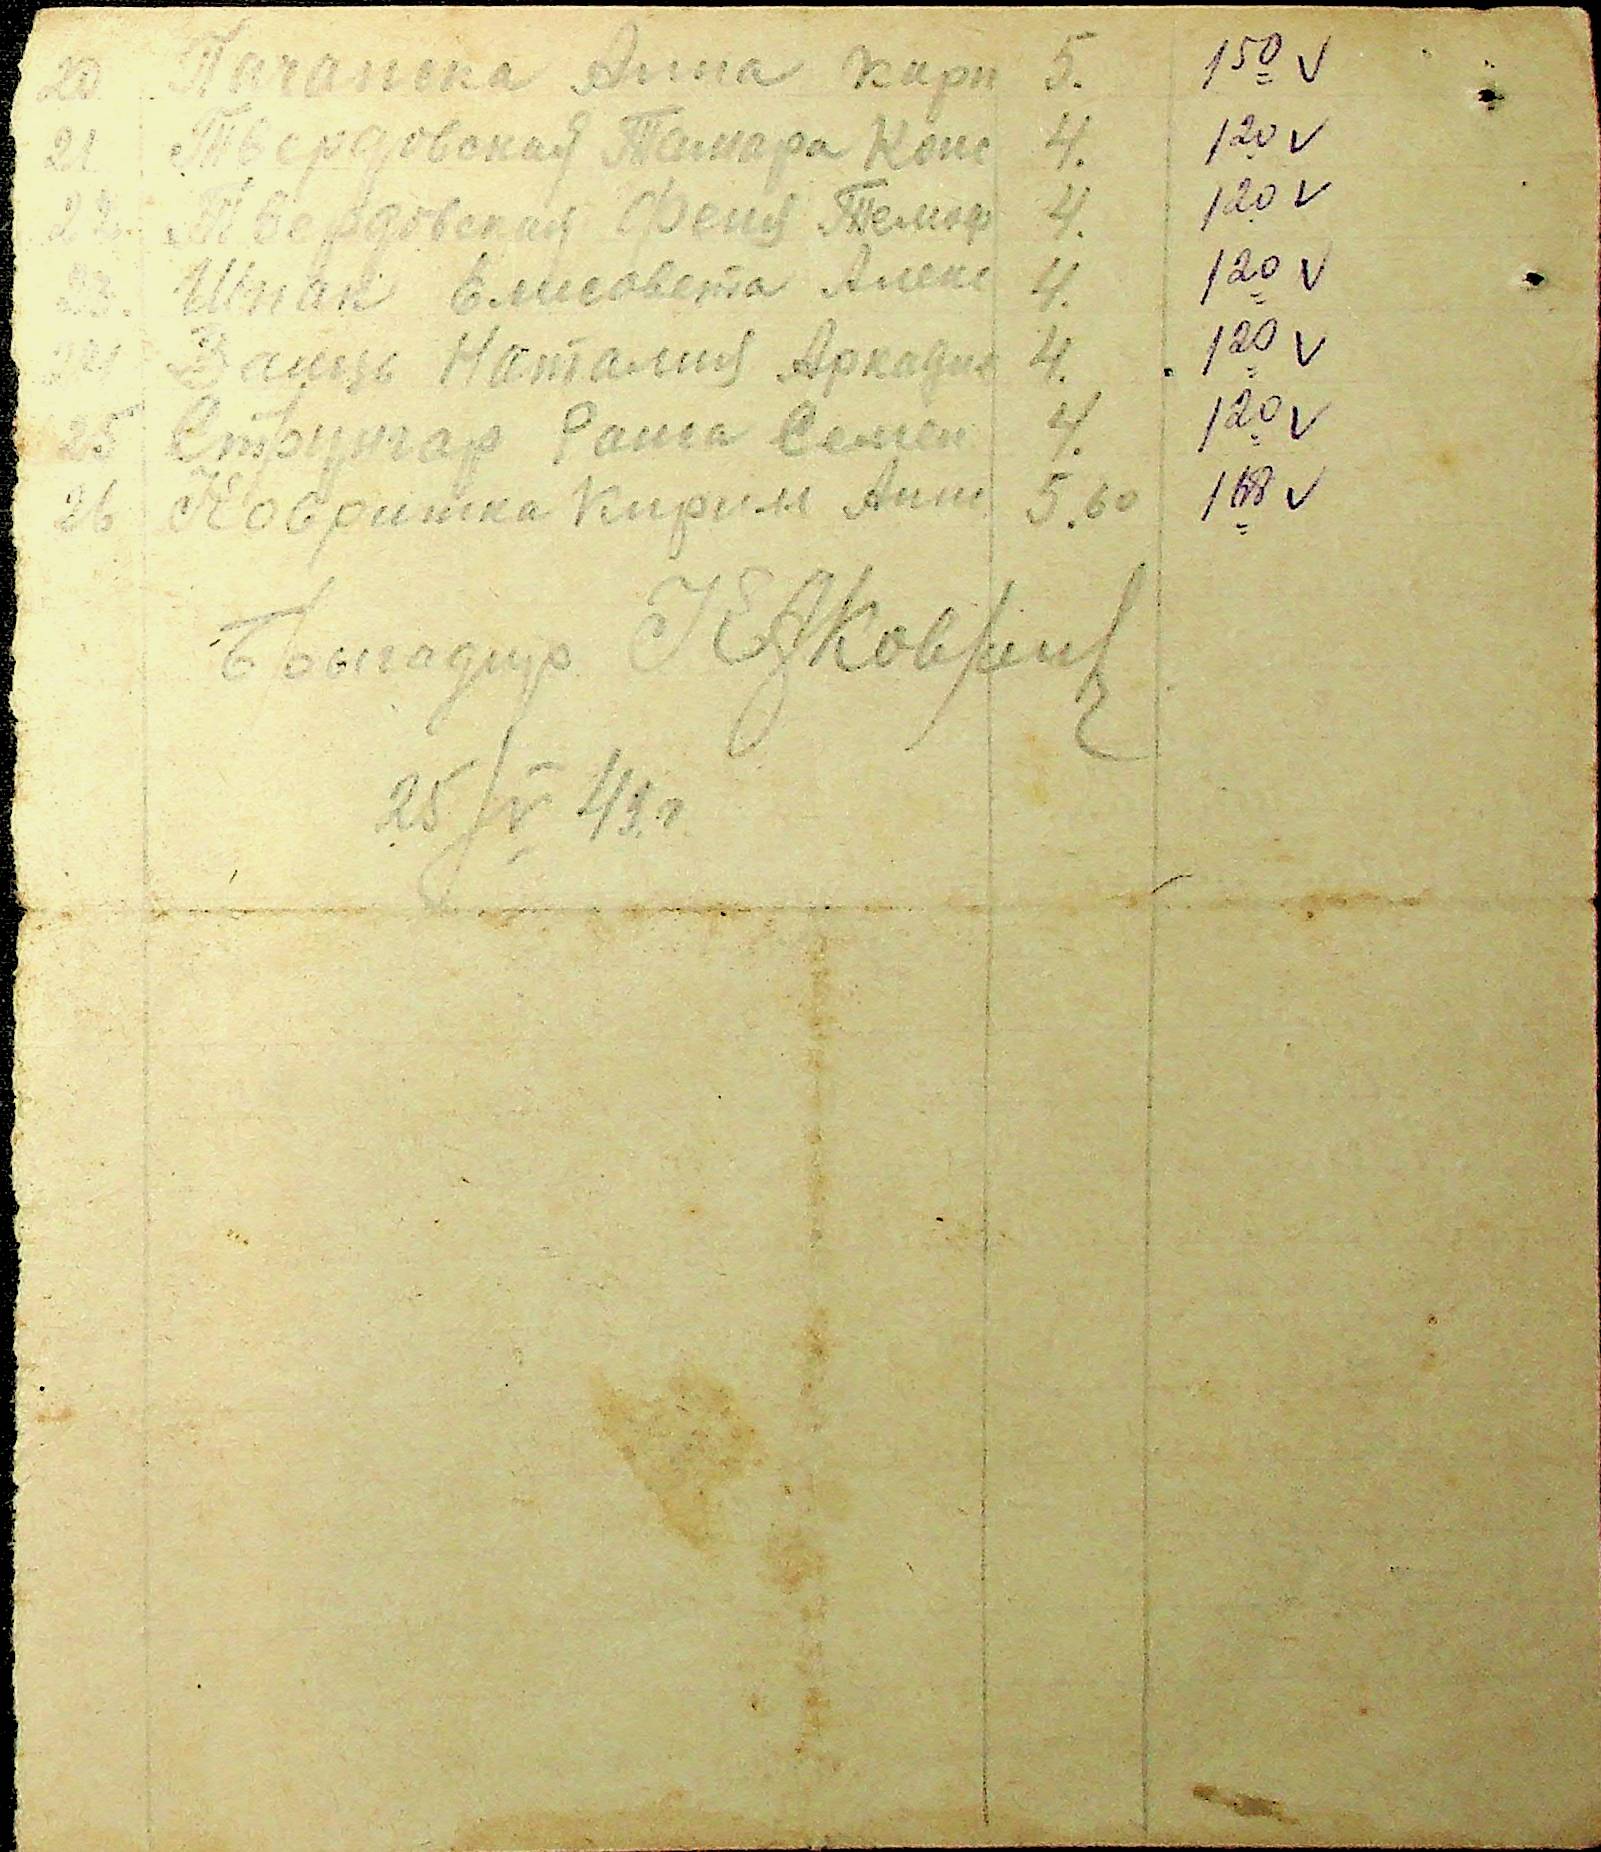 20 Пачанска Анна Карп 5. 150 v
21 Твердовская Тамара Конс 4. 120 v
22. Твердовская Феня Темоф 4. 120 v
23. Шпак Елисовета Алекс 4. 120 v
24 Заяць Наталия Аркадие 4. 120 v
25 Стрингар Раиса Семен 4. 120 v
26 Ковритка Кирил Ант 5.60 168 v
Бригадир
25/V 43 г.